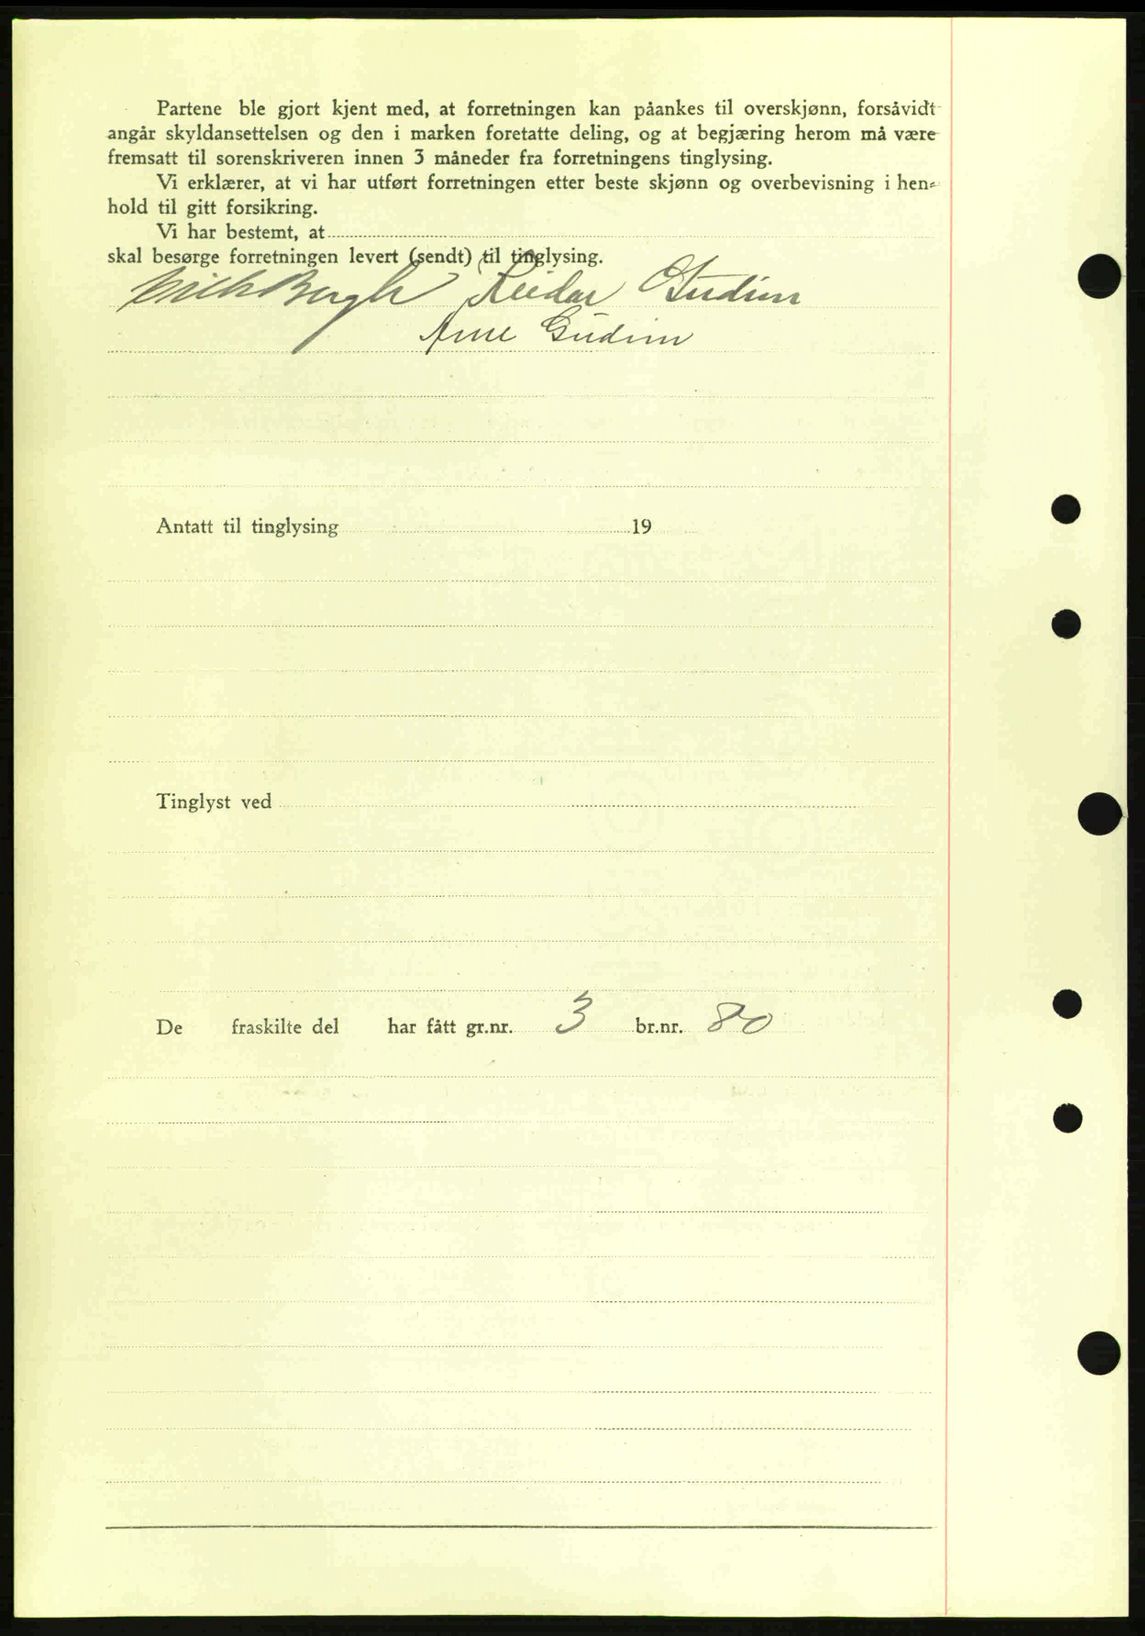 Partene ble gjort kjent med, at forretningen kan påankes til overskjønn, forsåvidt
angår skyldansettelsen og den i marken foretatte deling, og at begjæring herom må være
fremsatt til sorenskriveren innen 3 måneder fra forretningens tinglysing.
Vi erklærer, at vi har utført forretningen etter beste skjønn og overbevisning i hen-
hold til gitt forsikring.
Vi har bestemt, at
skal besørge forretningen levert (sendt) til tinglysing.
Bergh Reidar Gudim
Arne Gudim
Antatt til tinglysing 19
Tinglyst ved
De fraskilte del har fått gr.nr. 3 br.nr. 80